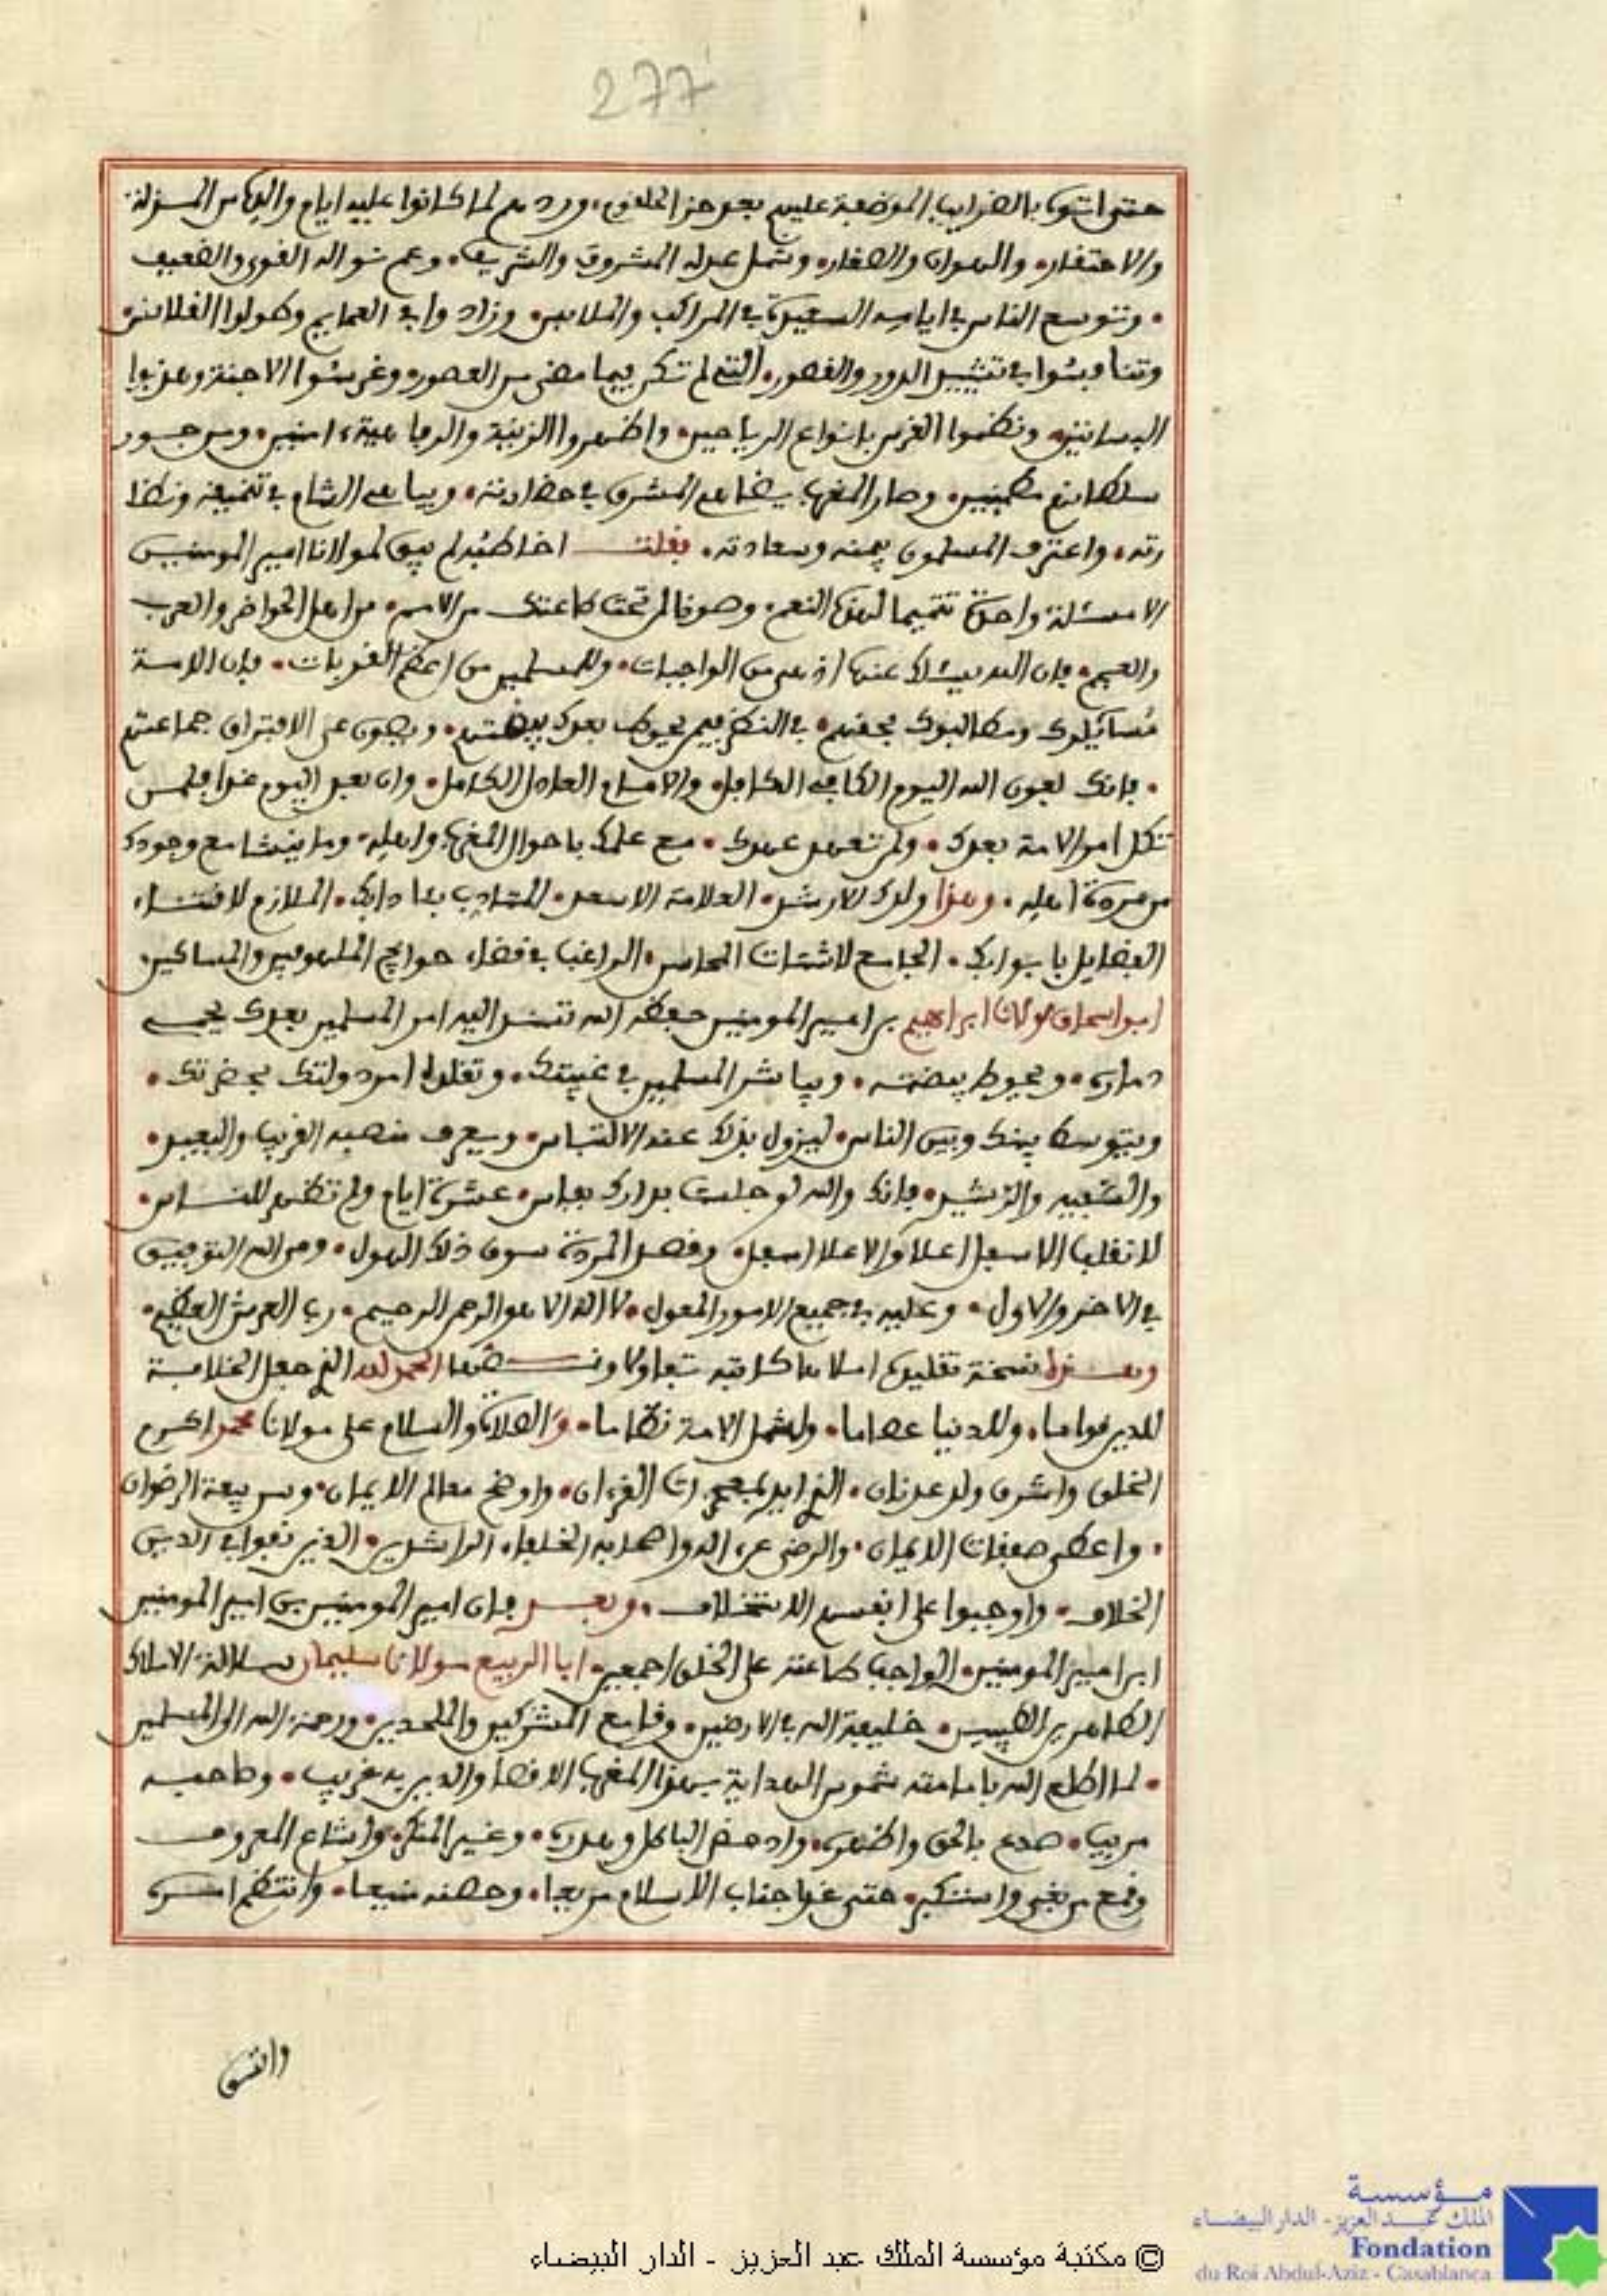 277
حتى اتوا بالضرايب الموضعة عليهم بعد هذا الخلفوا، وردهم لما كانوا عليه ايام والدهم من المذلة
والاحتقار، والهوان والصغار، وشمل عدله المشروف والشريف، وعم نواله القوي والضعيف
، وتوسع الناس في ايامه السعيدة في المراكب والملابس، وزادوا في العمايم وطولوا القلانس،
وتنافسوا في تشييد الدور والقصور، التي لم تكن فيما مضى من العصور، وغرسوا الاجنة وهذبوا
البساتين، ونظموا الغرس بانواع الرياحين، واظهروا الزينة والرفاهية، امنين، ومن جور
سلطانهم مطمنين، وصار المغرب يضاهي المشرق في حضارته، ويباهي الشام في تنميقه ونضا
رته، واعترف المسلمون بيمنه وسعادته، فقلت اخاطبه لم يبق لمولانا امير المومنين
الا مسئلة واحدة تتميما لهذه النعم، وصونا لمن تحت طاعتك من الامم، من اهل الحواضر والعرب
والعجم، فان الله يسئلك عنها اذ هي من الواجبات، وللمسلمين من اعظم القربات، فان الامة
مسائلوك ومطالبوك بحقهم، في النظر فيمن يحوط بعدك بيضتهم، ويصون عن الافتراق جماعتهم
، فانك بعون الله اليوم الكافي الكافل، والامام العادل الكامل، وان بعد اليوم غدا فلمن
تكل امر الامة بعدك، ولم تعهد عهدك، مع علمك باحوال المغرب واهله، وما ينشا مع وجودك
من مردة اهله، وهذا ولدك الارشد، العلامة الاسعد، المتادب بئادابك، الملازم لاقتناء
الفضايل بابوابك، الجامع لاشتات المحاسن، الراغب في قضاء حوايج الملهوفين والمساكين،
ابو اسحاق مولانا ابراهيم بن امير المومنين حفظه الله تسند اليه امر المسلمين بعدك يحمي
دماره، ويحوط بيضته، ويباشر المسلمين في غيبتك، وتقلده امر دولتك بحضرتك،
ويتوسط بينك وبين الناس، ليزول بذلك عنه الالتباس، ويعرف منصبه القريب والبعيد،
والسفيه والرشيد، فانك والله لو جلست بدارك بفاس، عشرة ايام ولم تظهر للناس،
لانقلب الاسفل اعلا والاعلا اسفل، وقصد المردة سوق ذلك الهول، ومن الله التوفيق
في الاخر والاول، وعليه في جميع الامور المعول، لا اله الا هو الرحمن الرحيم، رب العرش العظيم،
وهذه نسخة تقليده املاها كاتبه شفاها ونصها الحمد لله الذي جعل الخلافة
للدين قواما، وللدنيا عصاما، ولشمل الامة نظاما، والصلاة والسلام على مولانا محمد اكرم
الخلق واشرف ولد عدنان، الذي ايد بمعجزات القرءان، واوضح معالم الايمان، وسن بيعة الرضوان
، واعطى صفقات الايمان، والرضى عن اله واصحابه الخلفاء الراشدين، الذين نفوا في الدين
الخلاف، واوجبوا على انفسهم الاستخلاف، وبعد فان امير المومنين بن امير المومنين
ابن امير المومنين، الواجب طاعته على الخلق اجمعين، ابا الربيع مولانا سليمان سلالة الاملاك
الطاهرين الطيبين، خليفة الله في الارضين، وقامع المشركين والملحدين، ورحمة الله الى المسلمين
، لما اطلع الله بامامته شموس الهداية بهذا المغرب الاقصا والدين به غريب، وصاحبه
مريب، صدع بالحق واظهره، وادحض الباطل وهدره، وغير المنكر، واشاع المعروف
وقمع من بغى واستكبر، حتى غدا جناب الاسلام مريعا، وحصنه منيعا، وانتظم امره
واتسق
مؤسسة
الملك عبد العزيز - الدار البيضاء
Fondation
du Roi Abdul-Aziz - Casablanca
© مكتبة مؤسسة الملك عبد العزيز - الدار البيضاء